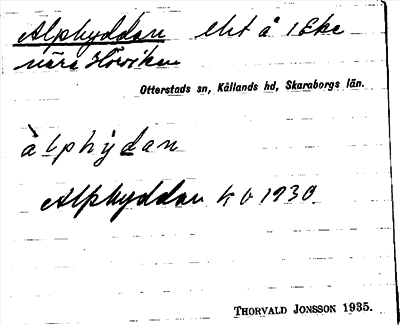 Alphyddan lht å 1 Eke
nära Hörviken
Otterstads sn, Kållands hd, Skaraborgs län.
àlphýdan
Alphyddan k b 1930.
THORVALD JONSSON 1935.